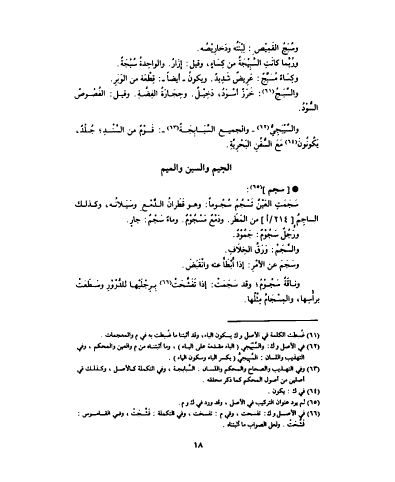 وسُبَجُ القَمِيْصِ : لِبْنَتُه ودَخارِيْصُه.
ورُبَّما كانَتِ السَّبِيْجَةُ من كِسَاءٍ، وقيل: إزَارٌ. والواحِدَةُ سُبْجَةٌ.
وكِسَاءٌ مُسَبَّجٌ: عَرِيْضٌ شَدِيدٌ. ويكونُ - أيضاً -: قِطْعَة من الوَبَرِ.
والسَّبَجُ(٦١): خَرَزٌ أسْوَدُ، دَخِيْلٌ. وحِجَارَةُ الفِضَّةِ. وقيل: الفُصُوْصُ
السُّوْدُ.
والسَّبَيْجِيُّ(٦٢) - والجميع السَّبَابِجَةُ(٦٣) -: قَوْمٌ من السِّنْدِ؛ جُلْدٌ،
يَكُوْنُونَ(٦٤) مَعَ السُّفُنِ البَحْرِيَّةِ.
الجيم والسين والميم
● [ سجم ](٦٥):
سَجَمَتِ العَيْنُ تَسْجُمُ سُجُوماً: وهو قَطَرانُ الدَّمْعِ وسَيَلانُه، وكذلك
الساجِمُ [ ٢١٤/أ ] من المَطَرِ. ودَمْعٌ مَسْجُوْمٌ. وماءٌ سَجْمٌ: جارٍ.
ورَجُلٌ سَجُوْمٌ: جَمُوْدٌ.
والسَّجَمُ: وَرَقُ الخِلافِ.
وسَجَمَ عن الأمْرِ: إذا أبْطَأ عنه وانْقَبَضَ.
وناقَةٌ سَجُوْمٌ؛ وقد سَجَمَتْ: إذا تَفَشَّحَتْ(٦٦) بِرِجْلَيْها للدُّرُوْرِ وسَطَعَتْ
برأْسِها، والمِسْجَامُ مِثْلُها.
(٦١) ضُبطت الكلمة في الأصل وك بسكون الباء، وقد أثبتنا ما ضُبطت به في م والمعجمات .
(٦٢) في الأصل وك: والسَّبَيْجي ( الباء مقدمة على الياء ) ، وما أثبتناه من م والعين والمحكم ، وفي
التهذيب واللسان : السَّبِيْجِيُّ ( بكسر الباء وسكون الياء ) .
(٦٣) وفي التهذيب والصحاح والمحكم واللسان . السبابجة ، وفي التكملة كالأصل ، وكذلك في
أصلين من أصول المحكم كما ذكر محققه .
(٦٤) في ك : يكون .
(٦٥) لم يرد عنوان التركيب في الأصل ، وقد ورد في ك و م .
(٦٦) في الأصل وك: تفسحت ، وفي م : تفسحت ، وفي التكملة : فَشَّحَتْ ، وفي القاموس :
فَشَّحَتْ . ولعل الصواب ما أثبتناه .
١٨